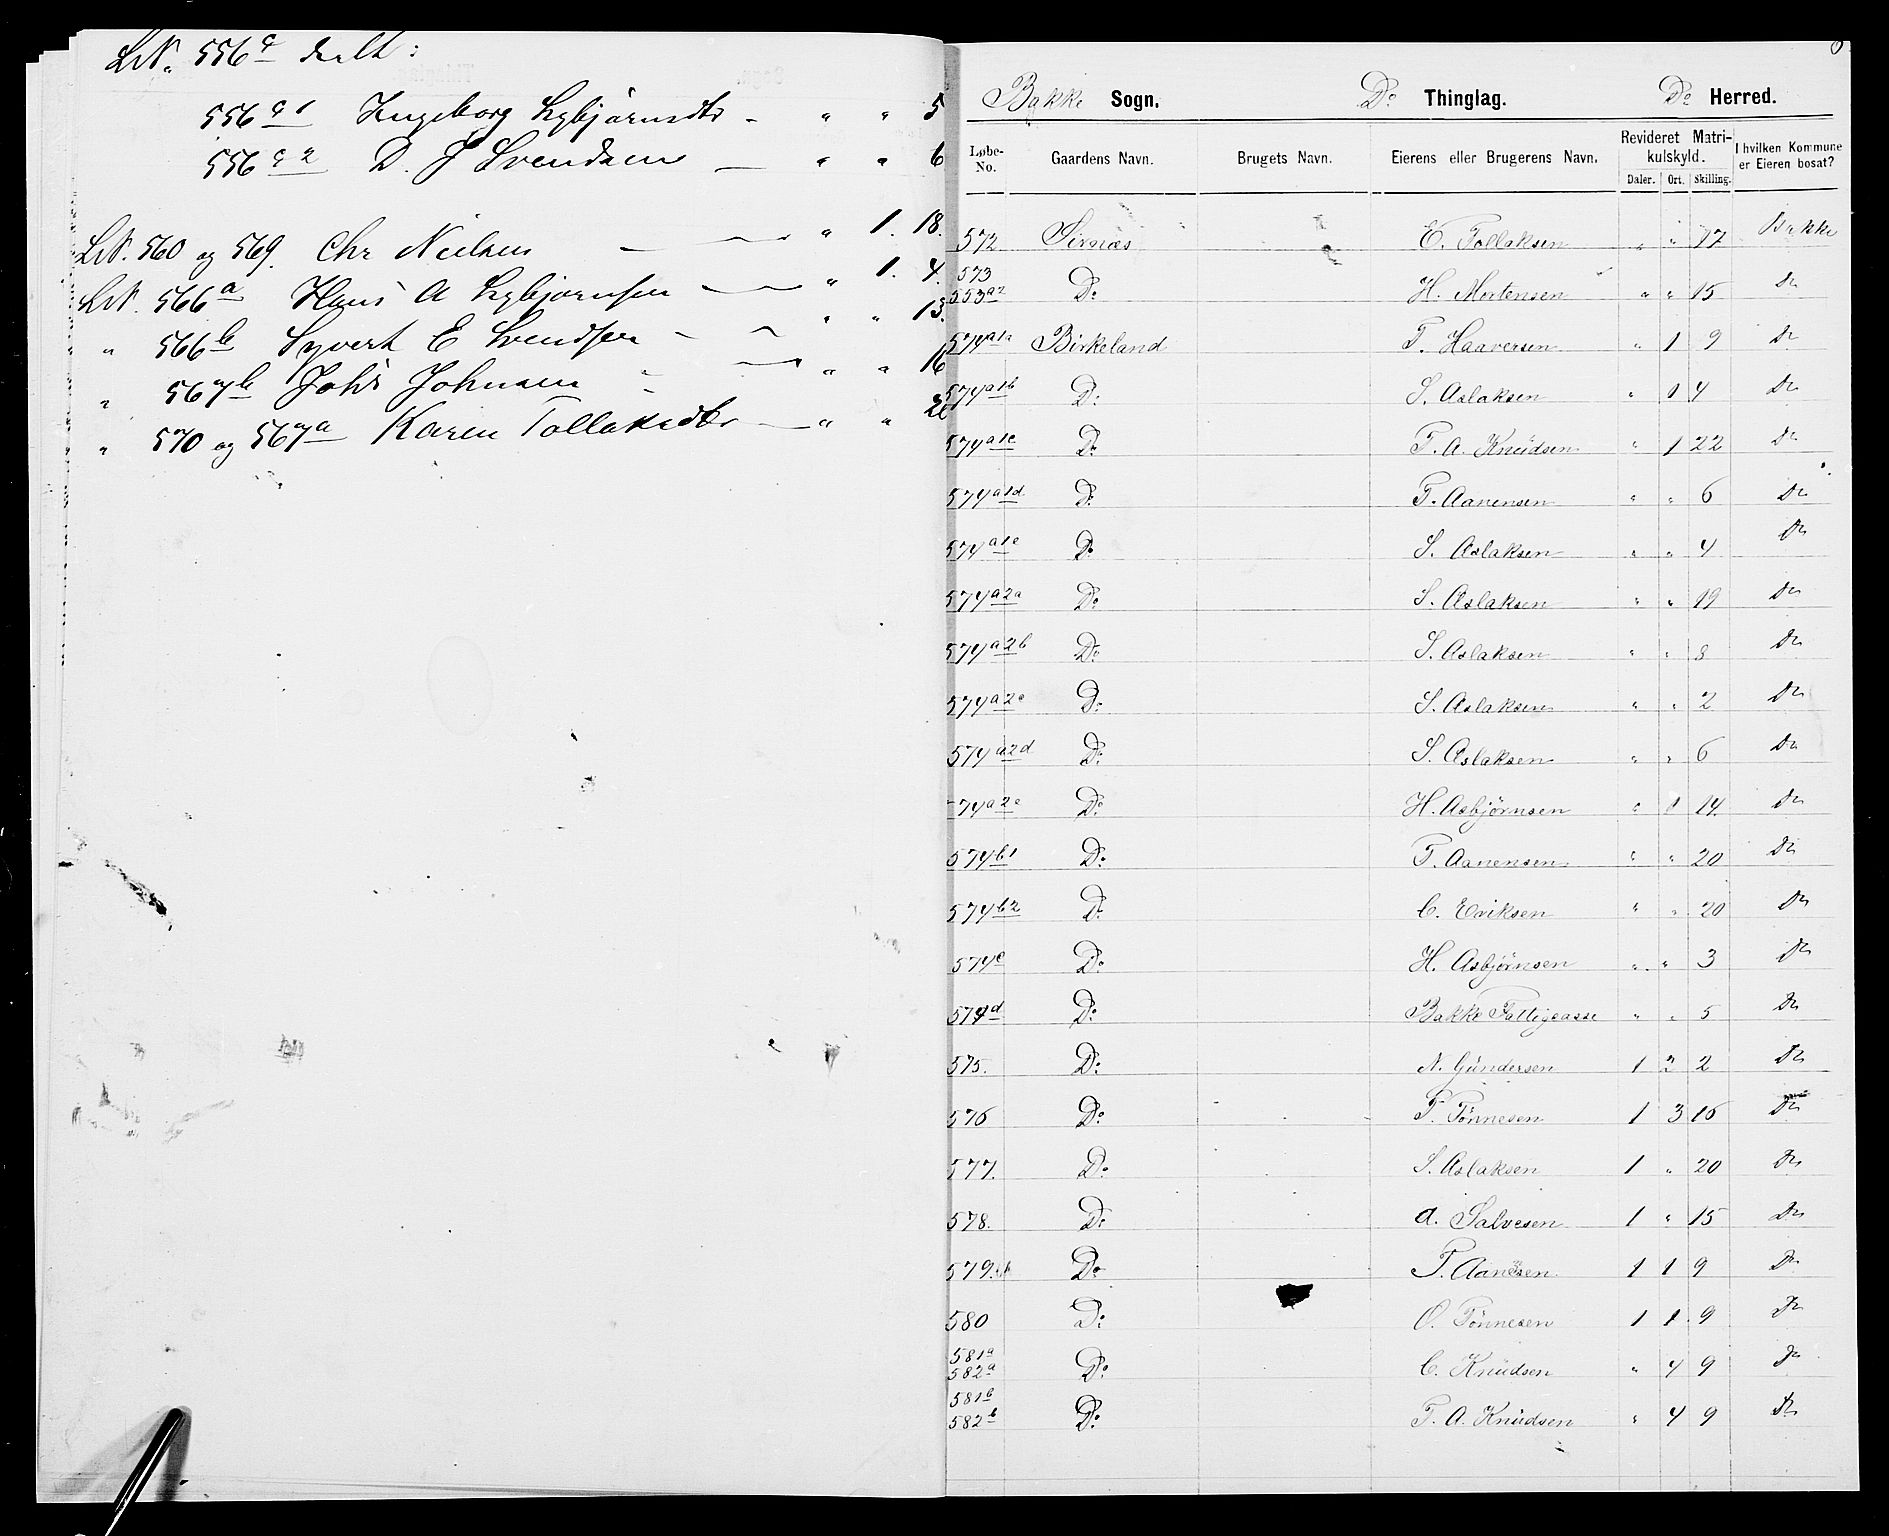 LN. 556c delt:
556c1 Ingeborg Esbjørnsdtr - " " 5
556c2 D. J Svendsen — " " 6
LN. 560 og 569. Chr Nielsen — " 1. 18.
LN. 566a Hans A Esbjørnsen — " 1. 4.
" 566b Syvert E Svendsen - " " 13.
" 567b Johs Johnsen - " " 16
" 570 og 567a Karen Tollaksdtr — " "
Bakke Sogn. Do Thinglag. Do Herred.
Løbe-No. Gaardens Navn. Brugets Navn. Eierens eller Brugerens Navn. Revideret Matrikulskyld. Daler. Ort. Skilling. I hvilken Kommune er Eieren bosat?
572 Sirnæs E. Tollaksen " " 17 Bakke
573 553a2 Do H. Mortensen " " 15 Do
574a1a Birkeland T. Haaversen " 1 9 Do
574a1b Do S. Aslaksen " 1 4 Do
574a1c Do T. A. Knudsen " 1 22 Do
574a1d Do T. Aanensen " " 6 Do
574a1e Do S. Aslaksen " " 4 Do
574a2a Do S. Aslaksen " " 19 Do
574a2b Do S. Aslaksen " " 8 Do
574a2c Do S. Aslaksen " " 2 Do
574a2d Do S. Aslaksen " " 6 Do
74a2e Do H. Asbjörnsen " 1 14 Do
574b1 Do T. Aanensen " " 20 Do
574b2 Do C. Eriksen " " 20 Do
574c Do H. Asbjörnsen " " 3 Do
574d Do Bakke Fattigcasse " " 5 Do
575. Do N. Gundersen 1 2 2 Do
576 Do T. Tönnesen 1 3 16 Do
577. Do S. Aslaksen 1 " 20 Do
578. Do A. Salvesen 1 " 15 Do
579. Do T. Aanesen 1 1 9 Do
580 Do O. Tönnesen 1 1 9 Do
581a 582a Do C. Knudsen " 4 9 Do
581b 582b Do T. A. Knudsen " 4 9 Do